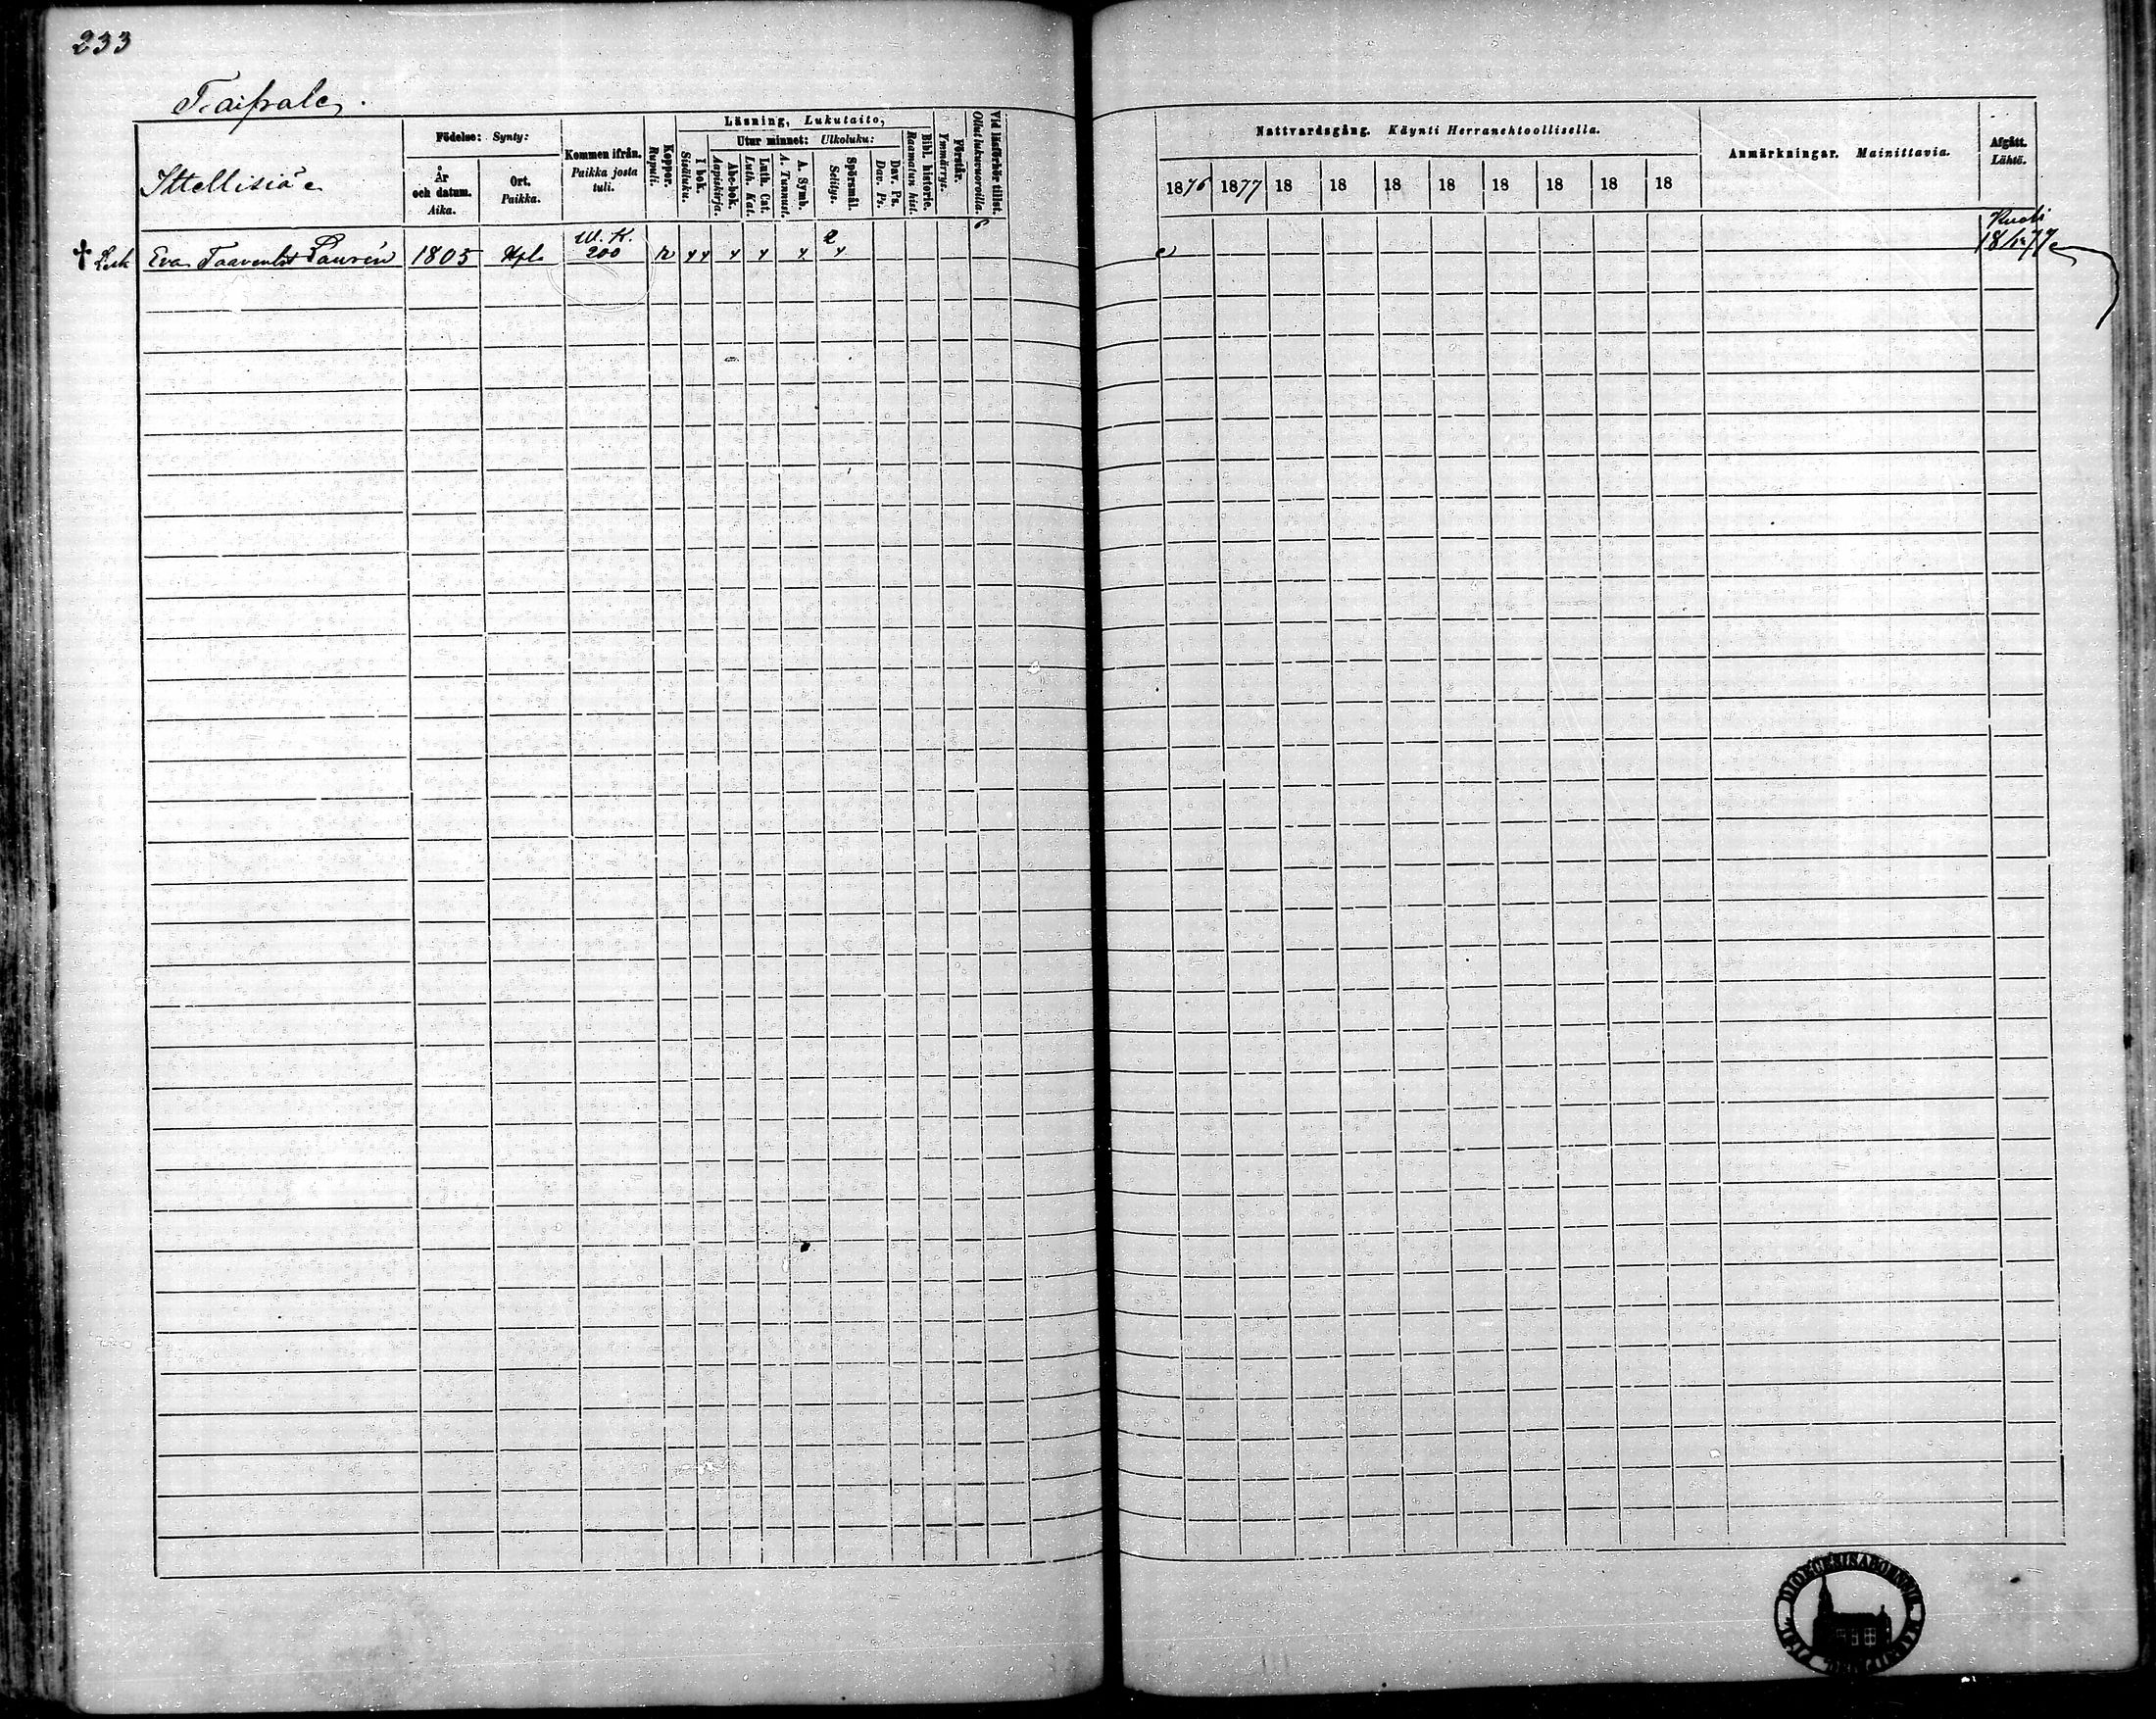 233
Taipale.
Läsning, Lukutaito,
Födelse: Synty:
Utur minnet: Ulkoluku:
Kommen ifrån.
Paikka josta
tuli.
År
och datum.
Aika.
Ort.
Paikka.
Koppor.
Rupuli.
I bok.
Sisäluku.
Abc-bok.
Aapiskirja.
Luth. Cat.
Luth. Kat.
A. Symb.
A. Tunnust.
Spörsmål.
Selitys.
Dav. Ps.
Dav. Ps.
Bibl. historie.
Raamatun hist.
Förstår.
Ymmärrys.
Vid läsförhör tillst.
Ollut lukuvuoroilla.
Ittellisiä
Nattvardsgång. Käynti Herranehtoollisella.
Anmärkningar. Mainittavia.
Afgått.
Lähtö.
1876 1877 18 18 18 18 18 18 18 18
W. K.
200
† Lesk Eva Taaventint. Laurén 1805 r 4 4 4 4 4 4
2
Kuoli
18/12 77